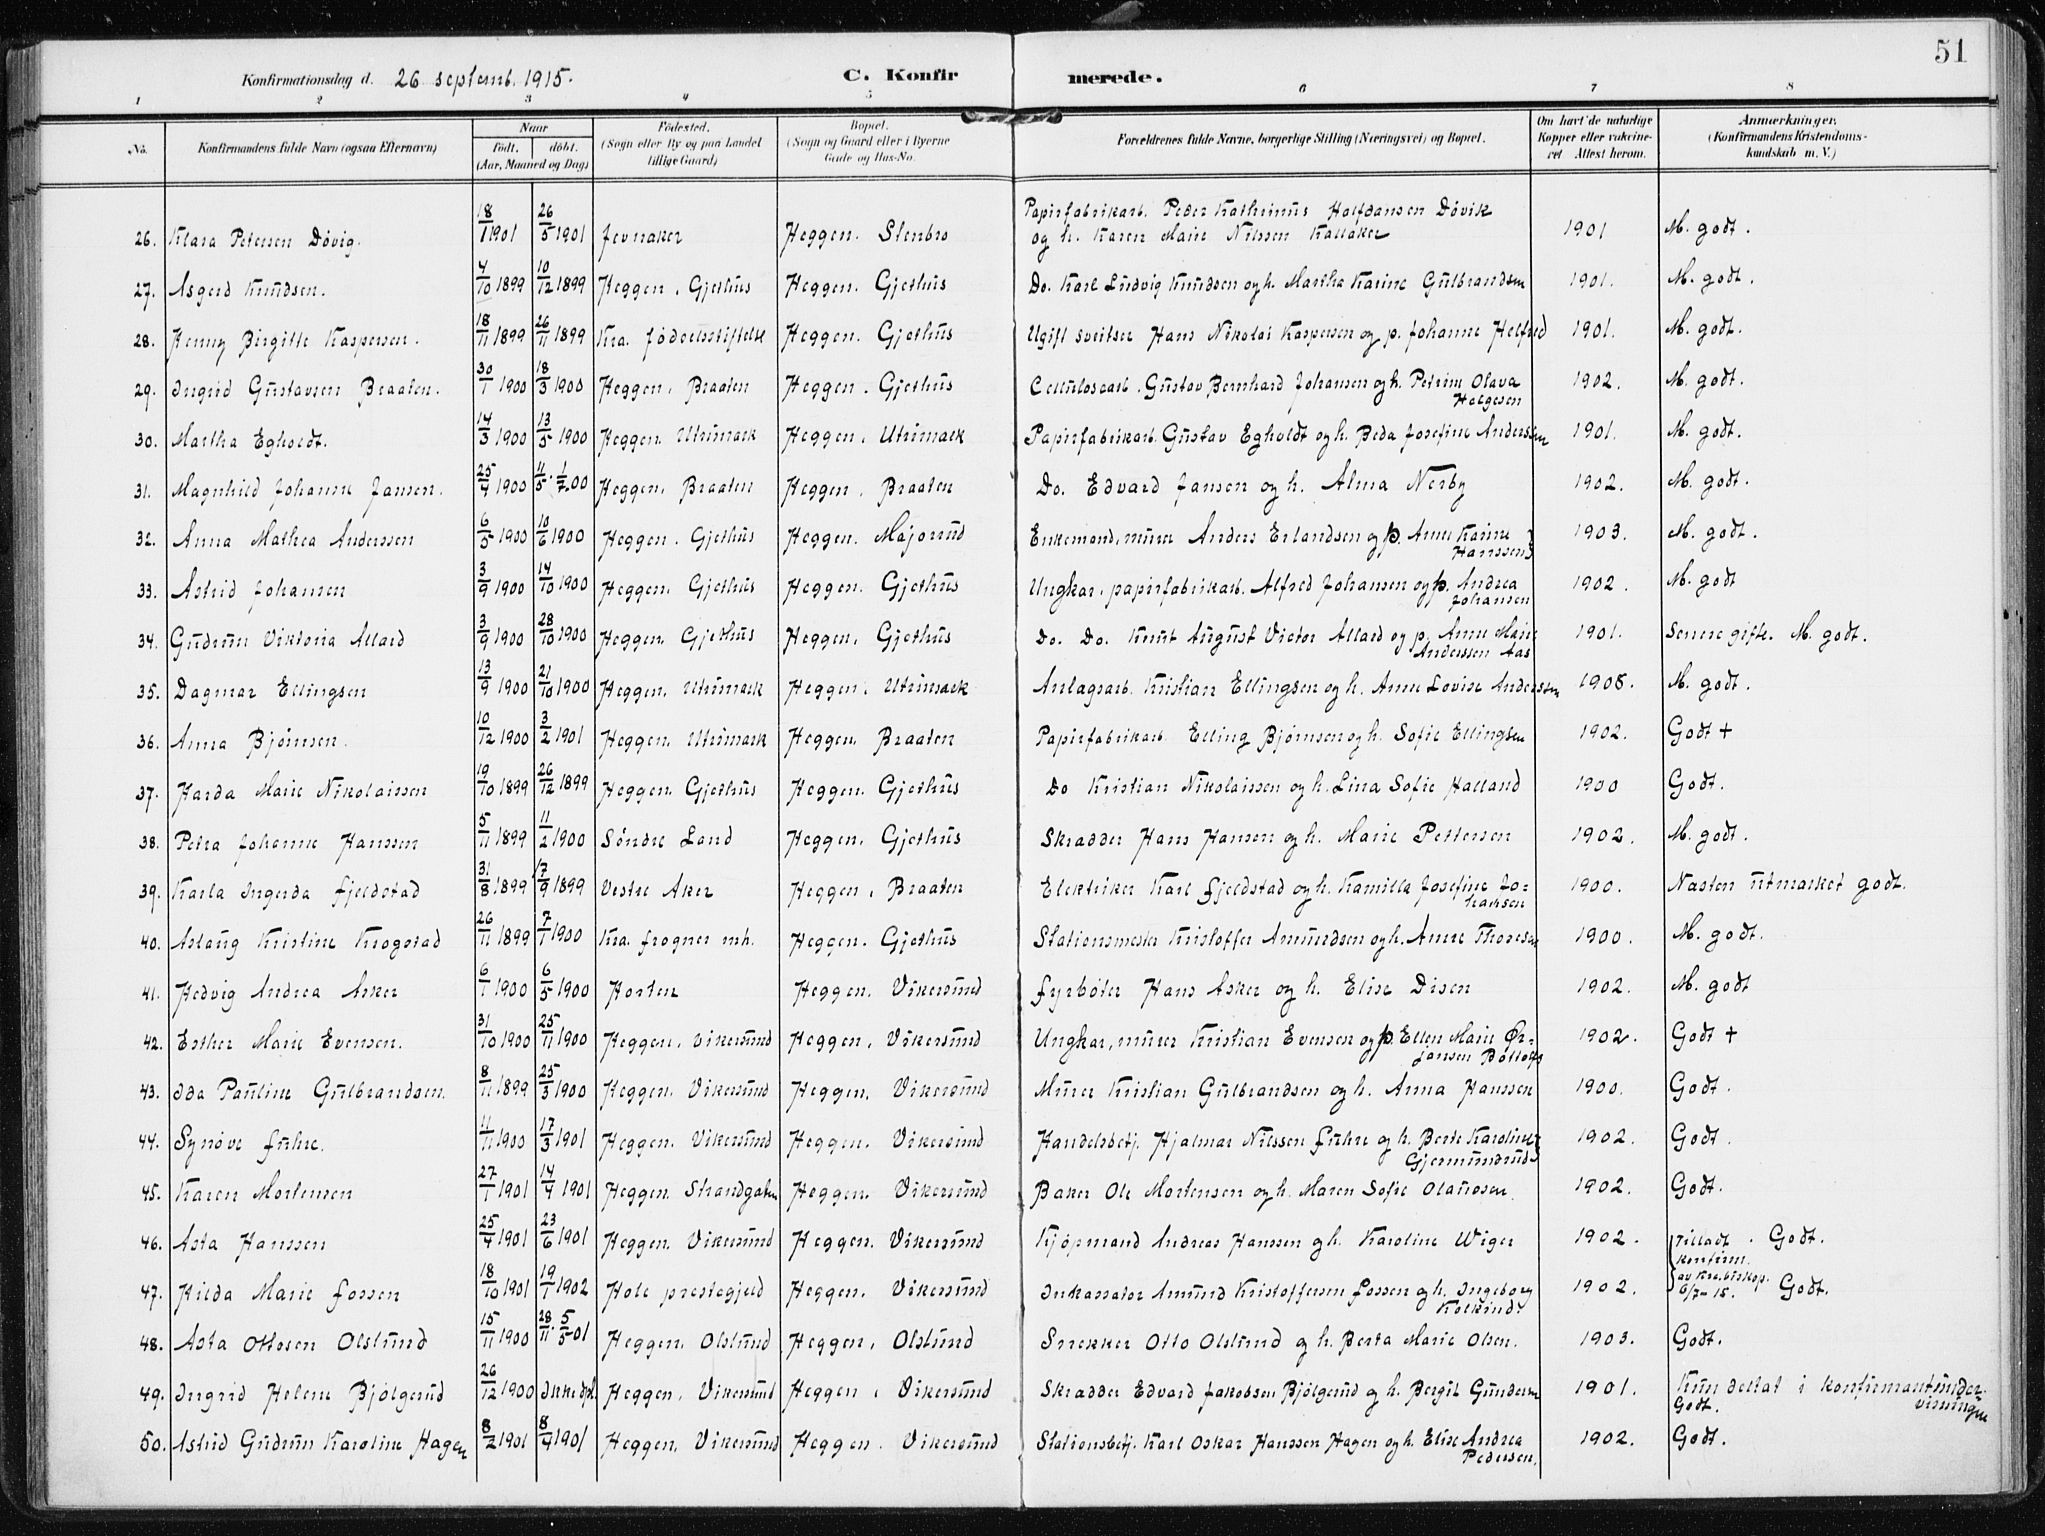 51
Konfirmationsdag d. 26 septemb. 1915.
C. Konfirmerede.
1 2 3 4 5 6 7 8
No. | Konfirmandens fulde Navn (ogsaa Efternavn) | Naar født. døbt. (Aar, Maaned og Dag) | Fødested. (Sogn eller By og paa Landet tillige Gaard) | Bopæl. (Sogn og Gaard eller i Byerne Gade og Hus-No. | Forældrenes fulde Navne, borgerlige Stilling (Næringsvei) og Bopæl. | Om havt de naturlige Kopper eller vaksineret Attest herom. | Anmærkninger. (Konfirmandens Kristendomskundskab m. V.)
26. Klara Petersen Dövig. 18/1 1901 26/5 1901 Jevnaker Heggen. Stenbro Papirfabrikarb. Peder Kathinus Halfdansen Dövik og h. Karen Marie Nilssen Kallaker 1901 M. godt.
27. Asgerd Knudsen. 4/10 1899 10/12 1899 Heggen, Gjethus Heggen. Gjethus Do. Karl Ludvig Knudsen og h. Martha Karine Gulbrandsen 1901. M. godt.
28. Henny Birgitte Kaspersen. 18/11 1899 26/11 1899 Kra. födselsstiftelse Heggen. Gjethus Ugift sveitser Hans Nikolai Kaspersen og p. Johanne Helfred 1901. M. godt.
29. Ingrid Gustavsen Braaten. 30/1 1900 18/3 1900 Heggen, Braaten Heggen. Gjethus Cellulosearb. Gustav Bernhard Johansen og h. Petrine Olava Helgesen 1902. M. godt.
30. Martha Egholdt. 14/3 1900 13/5 1900 Heggen. Utrimark Heggen, Utrimark Papirfabrikarb. Gustav Egholdt og h. Beda Josefine Anderssen 1901. M. godt.
31. Magnhild Johanne Jansen. 25/4 1900 4/5. 1/7 00 Heggen, Braaten Heggen, Braaten Do. Edvard Jansen og h. Alma Nerby 1902. M. godt.
32. Anna Mathea Anderssen 6/5 1900 10/6 1900 Heggen. Gjethus Heggen. Majorud Enkemand, murer Anders Erlandsen og p. Anne Karine Hanssen 1903. M. godt.
33. Astrid Johansen 3/9 1900 14/10 1900 Heggen, Gjethus Heggen. Gjethus Ungkar, papirfabrikarb. Alfred Johansen og p. Andrea Johansen 1902. M. godt
34. Gudrun Viktoria Allard 3/9 1900 28/10 1900 Heggen, Gjethus Heggen, Gjethus Do. Do. Knut August Victor Allard og p. Anne Marie Anderssen Aas 1901. Senere gifte. M. godt.
35. Dagmar Ellingsen 13/9 1900 21/10 1900 Heggen, Utrimark Heggen, Utrimark Anlagsarb. Kristian Ellingsen og h. Anne Lovise Anderssen 1908. M. godt.
36. Anna Bjørnsen. 10/12 1900 3/2 1901 Heggen, Utrimark Heggen, Braaten Papirfabrikarb. Elling Bjørnsen og h. Sofie Ellingsen 1902. Godt +
37. Harda Marie Nikolaissen 19/10 1899 26/12 1899 Heggen, Gjethus Heggen. Gjethus Do Kristian Nikolaissen og h. Lina Sofie Halland 1900 Godt.
38. Petra Johanne Hanssen 5/11 1899 11/2 1900 Söndre Land Heggen. Gjethus Skradder Hans Hansen og h. Marie Pettersen 1902. M. godt.
39. Karla Ingerda Fjeldstad 31/8 1899 17/9 1899 Vestre Aker Heggen, Braaten Elektriker Karl Fjeldstad og h. Kamilla Josefine Johansen 1900. Næsten utmerket godt.
40. Aslaug Kristine Krogstad 26/11 1899 7/1 1900 Kra. Frogner mh. Heggen. Gjethus Stationsmester Kristoffer Amundsen og h. Anne Thoresen 1900. M. godt.
41. Hedvig Andrea Asker 6/1 1900 6/5 1900 Horten Heggen. Vikersund Fyrböter Hans Asker og h. Elise Disen 1902. M. godt
42. Esther Marie Evensen. 31/10 1900 25/11 1900 Heggen, Vikersund Heggen, Vikersund Ungkar, murer Kristian Evensen og p. Ellen Marie Ørjansen Böttolfs 1902. Godt +
43. Ida Pauline Gulbrandsen. 8/11 1899 25/3 1900 Heggen. Vikersund Heggen, Vikersund Murer Kristian Gulbrandsen og h. Anna Hanssen 1900. Godt.
44. Synöve Fuhre. 11/11 1900 17/3 1901 Heggen, Vikersund Heggen. Vikersund Handelsbetj. Hjalmar Nilssen Fuhre og h. Berte Karoline Gjermundrud 1902. Godt.
45. Karen Mortensen 27/1 1901 14/4 1901 Heggen. Strandgaten Heggen. Vikersund Baker Ole Mortensen og h. Maren Sofie Olaussen. 1902. Godt.
46. Asta Hanssen 25/4 1901 23/6 1901 Heggen. Vikersund Heggen. Vikersund Kjøpmand Andreas Hanssen og h. Karoline Wiger 1902. Tilladt konfirm. av Kra. biskop. 6/7-15. Godt.
47. Hilda Marie Fossen 18/10 1901 19/1 1902 Hole prestegjeld Heggen. Vikersund Inkassator Amund Kristoffersen Fossen og h. Ingeborg Kolkind. 1902. Godt.
48. Asta Ottosen Olslund 15/11 1900 28/11. 5/5 01 Heggen, Olslund Heggen, Olslund Snekker Otto Olslund og h. Berta Marie Olsen. 1903. Godt.
49. Ingrid Helene Bjölgerud 26/12 1900 Ikke dpt. Heggen, Vikersund Heggen, Vikersund Skradder Edvard Jakobsen Bjölgerud og h. Bergit Gundersen 1901. Kun deltat i konfirmantundervisningen Godt.
50. Astrid Gudrun Karoline Hagen 8/2 1901 8/4 1901 Heggen, Vikersund Heggen. Vikersund Stationsbetj. Karl Oskar Hanssen Hagen og h. Elise Andrea Pedersen. 1902. Godt.